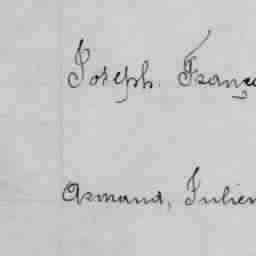 Joseph. Franço
Armand, Julien